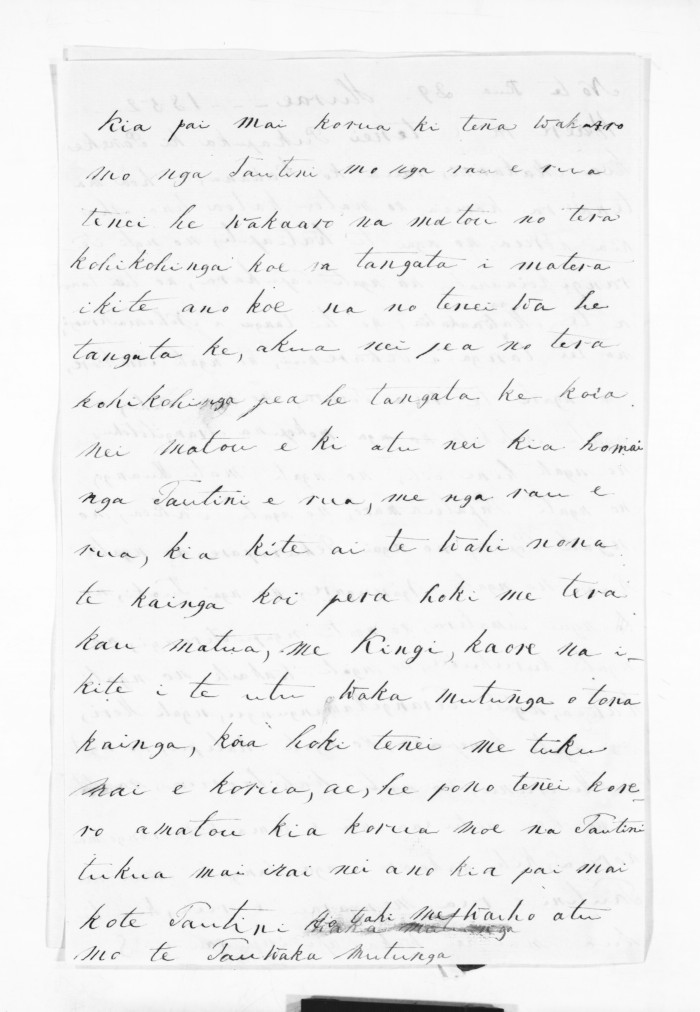 kia pai mai korua ki tena wakaaro
mo nga Tautini mo nga rau e rua
tenei he wakaaro na matou no tera
kohikohinga koe ra tangata i matera
ikite ano koe na no tenei wa he
tangata ke, akua nei pea no tera
kohikohinga pea he tangata ke koia
nei matou e ki atu nei kia homai
nga Tautini e rua, me nga rau e
rua, kia kite ai te wahi nona
te kainga koi pera hoki me tera
kau matua, me Kingi, kaore na i-
kite i te utu waka mutunga o tona
kainga, koia hoki tenei me tuku
mai e korua, ae, he pono tenei kore-
ro amatou kia korua moe na Tautini
tukua mai irai nei ano kia pai mai
kote Tautini wahi me waiho atu
mo te Tau waka mutunga